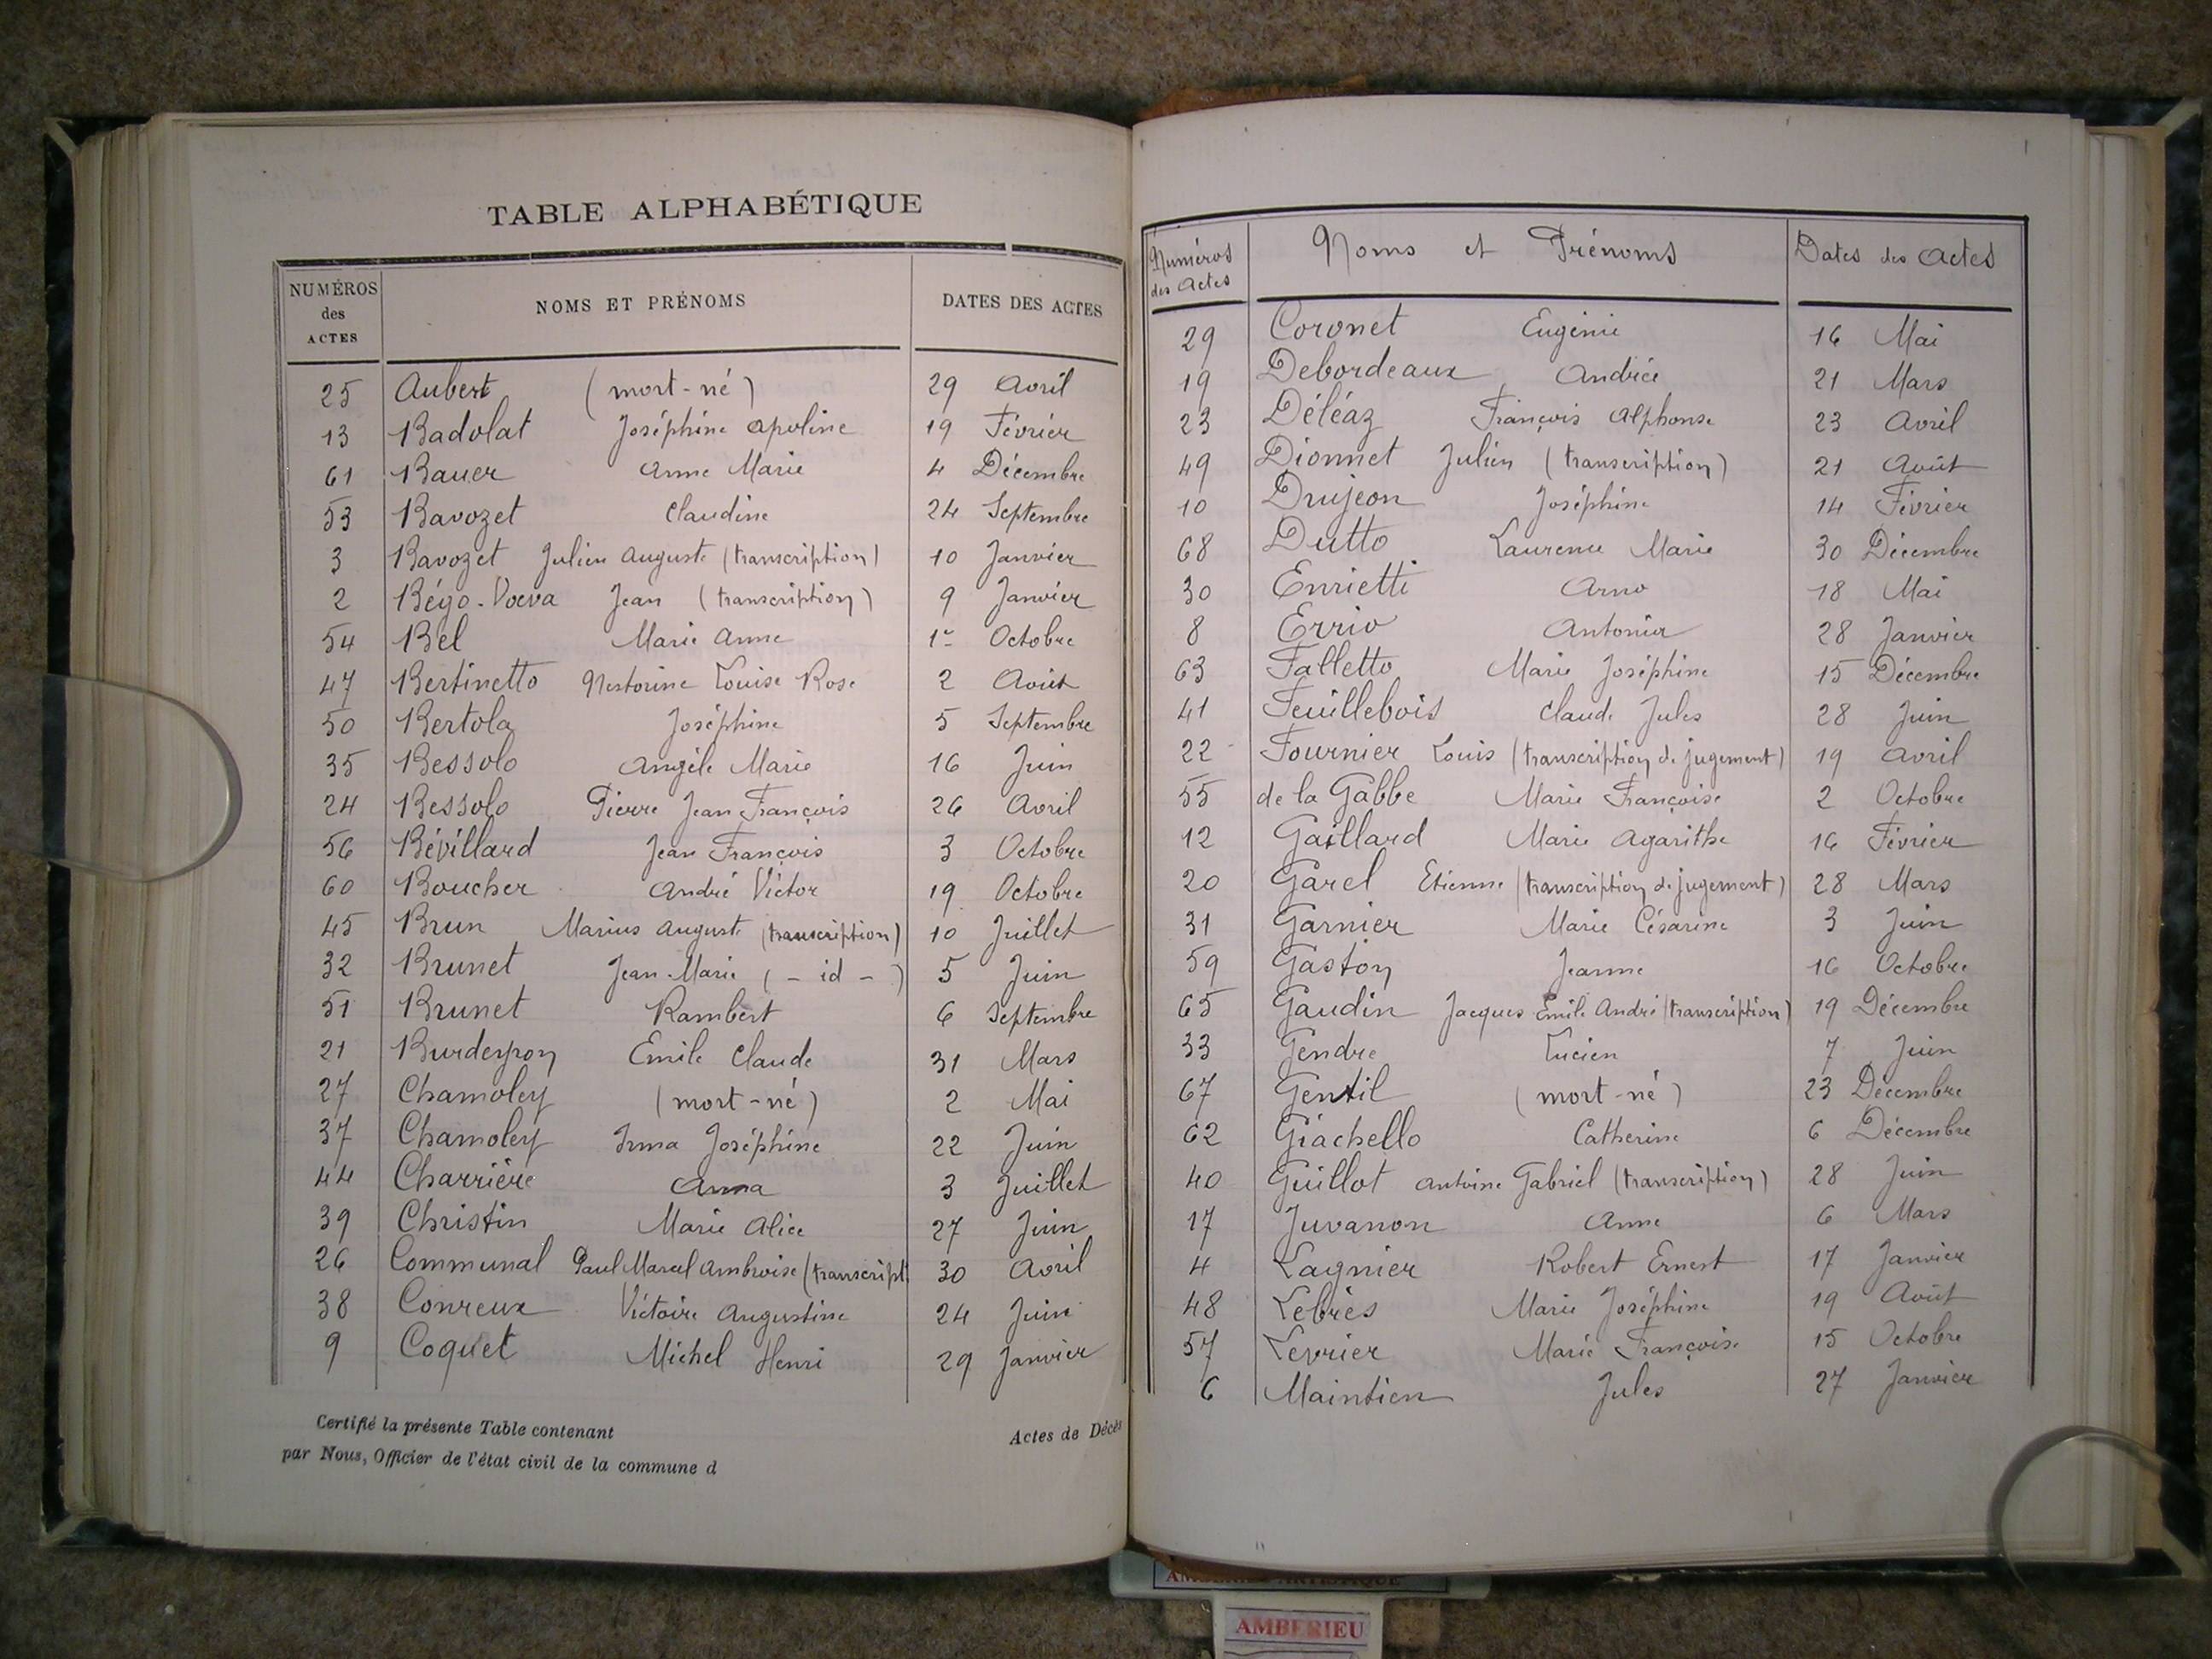 TABLE ALPHABÉTIQUE
NUMÉROS des ACTES NOMS ET PRÉNOMS DATES DES ACTES
25 Aubert (mort-né) 29 Avril
13 Badolat Joséphine Apoline 19 Février
61 Bauer Anne Marie 4 Décembre
53 Bavozet Claudine 24 Septembre
3 Bavozet Julien Auguste (transcription) 10 Janvier
2 Bégo-Voeva Jean (transcription) 9 Janvier
54 Bel Marie Anne 1er Octobre
47 Bertinetto Nestorine Louise Rose 2 Août
50 Bertola Joséphine 5 Septembre
35 Bessolo Angèle Marie 16 Juin
24 Bessolo Pierre Jean François 26 Avril
56 Bévillard Jean François 3 Octobre
60 Boucher André Victor 19 Octobre
45 Brun Marius Auguste (transcription) 10 Juillet
32 Brunet Jean-Marie (- id -) 5 Juin
51 Brunet Rambert 6 Septembre
21 Burdeyron Emile Claude 31 Mars
27 Chamoley (mort-né) 2 Mai
37 Chamoley Irma Joséphine 22 Juin
44 Charrière Anna 3 Juillet
39 Christin Marie Alice 27 Juin
26 Communal Paul Marcel Ambroise (transcript. 30 Avril
38 Conreux Victoire Augustine 24 Juin
9 Coquet Michel Henri 29 Janvier
Certifié la présente Table contenant Actes de Décès
par Nous, Officier de l'état civil de la commune d
Numéros des Actes Noms et Prénoms Dates des Actes
29 Coronet Eugénie 16 Mai
19 Debordeaux Andrée 21 Mars
23 Déléaz François Alphonse 23 Avril
49 Dionnet Julien (transcription) 21 Août
10 Drujeon Joséphine 14 Février
68 Dutto Laurence Marie 30 Décembre
30 Enrietti Arno 18 Mai
8 Errio Antonia 28 Janvier
63 Falletto Marie Joséphine 15 Décembre
41 Feuillebois Claude Jules 28 Juin
22 Fournier Louis (transcription de jugement) 19 Avril
55 de la Gabbe Marie Françoise 2 Octobre
12 Gaillard Marie Agarithe 16 Février
20 Garel Etienne (transcription de jugement) 28 Mars
31 Garnier Marie Césarine 3 Juin
59 Gaston Jeanne 16 Octobre
65 Gaudin Jacques Emile André (transcription) 19 Décembre
33 Gendre Lucien 7 Juin
67 Gentil (mort-né) 23 Décembre
62 Giachello Catherine 6 Décembre
40 Guillot Antoine Gabriel (transcription) 28 Juin
17 Juvanon Anne 6 Mars
4 Lagnier Robert Ernest 17 Janvier
48 Lebriès Marie Joséphine 19 Août
57 Levrier Marie Françoise 15 Octobre
6 Maintien Jules 27 Janvier
AMBERIEU